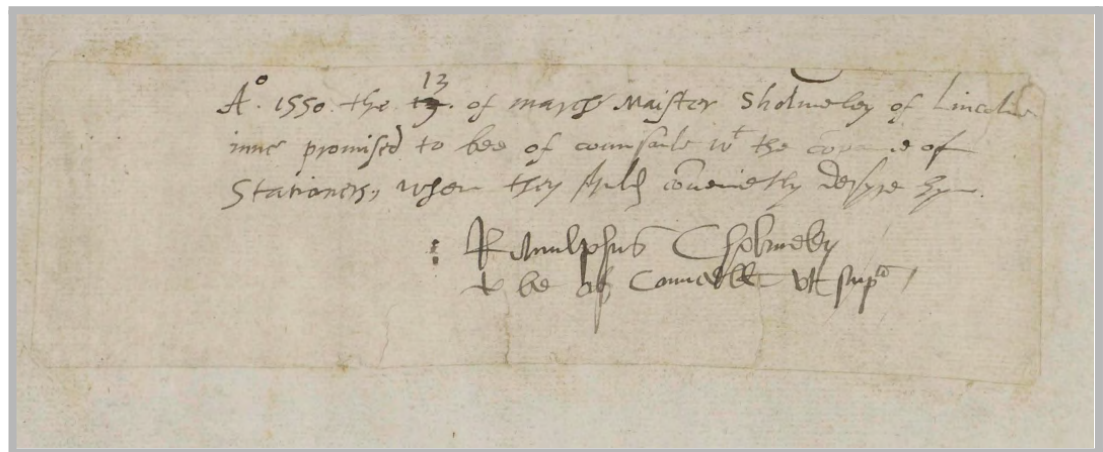 Ao. 1550. the 13 of march Maister Sholmeley of Lincolne
inne promised to bee of counsaile wt the of
Stationers, when they shuld coveniẽtly desyre hym.
Ranulphus Cholmeley
to be of Councell vt supra